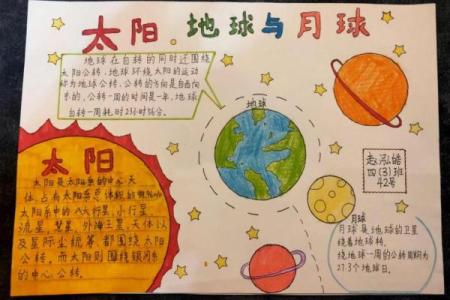 太阳、地球与月球
地球在自转的同时还围绕
太阳公转,地球环绕太阳的运动
称为地球公转,公转的方向是自西向
东的,公转一周的时间是一年,地球
自转一周耗时23小时56分。
地球
赵泓皓
四(3)班
42号
太阳
太阳是太阳系的中心天
体,占有太阳系总体质的99.86%
太阳系中的八大行星、小行星、
流星、彗星、外海王星、天体以
及星际尘埃等,都围绕太阳
公转,而太阳则围绕银河系
的中心公转。
月球
月球是地球的卫星
绕着地球转,
绕地球一周的公转周期为
27.3个地球日。